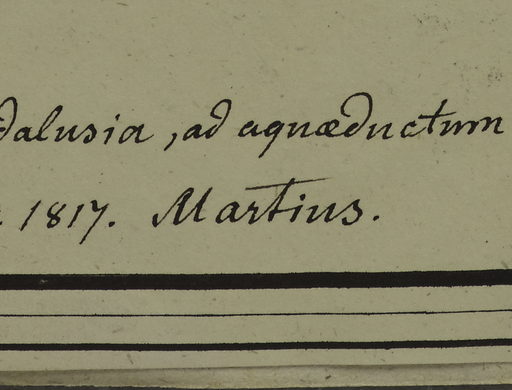 dalusia, ad aquæductum
1817. Martius.